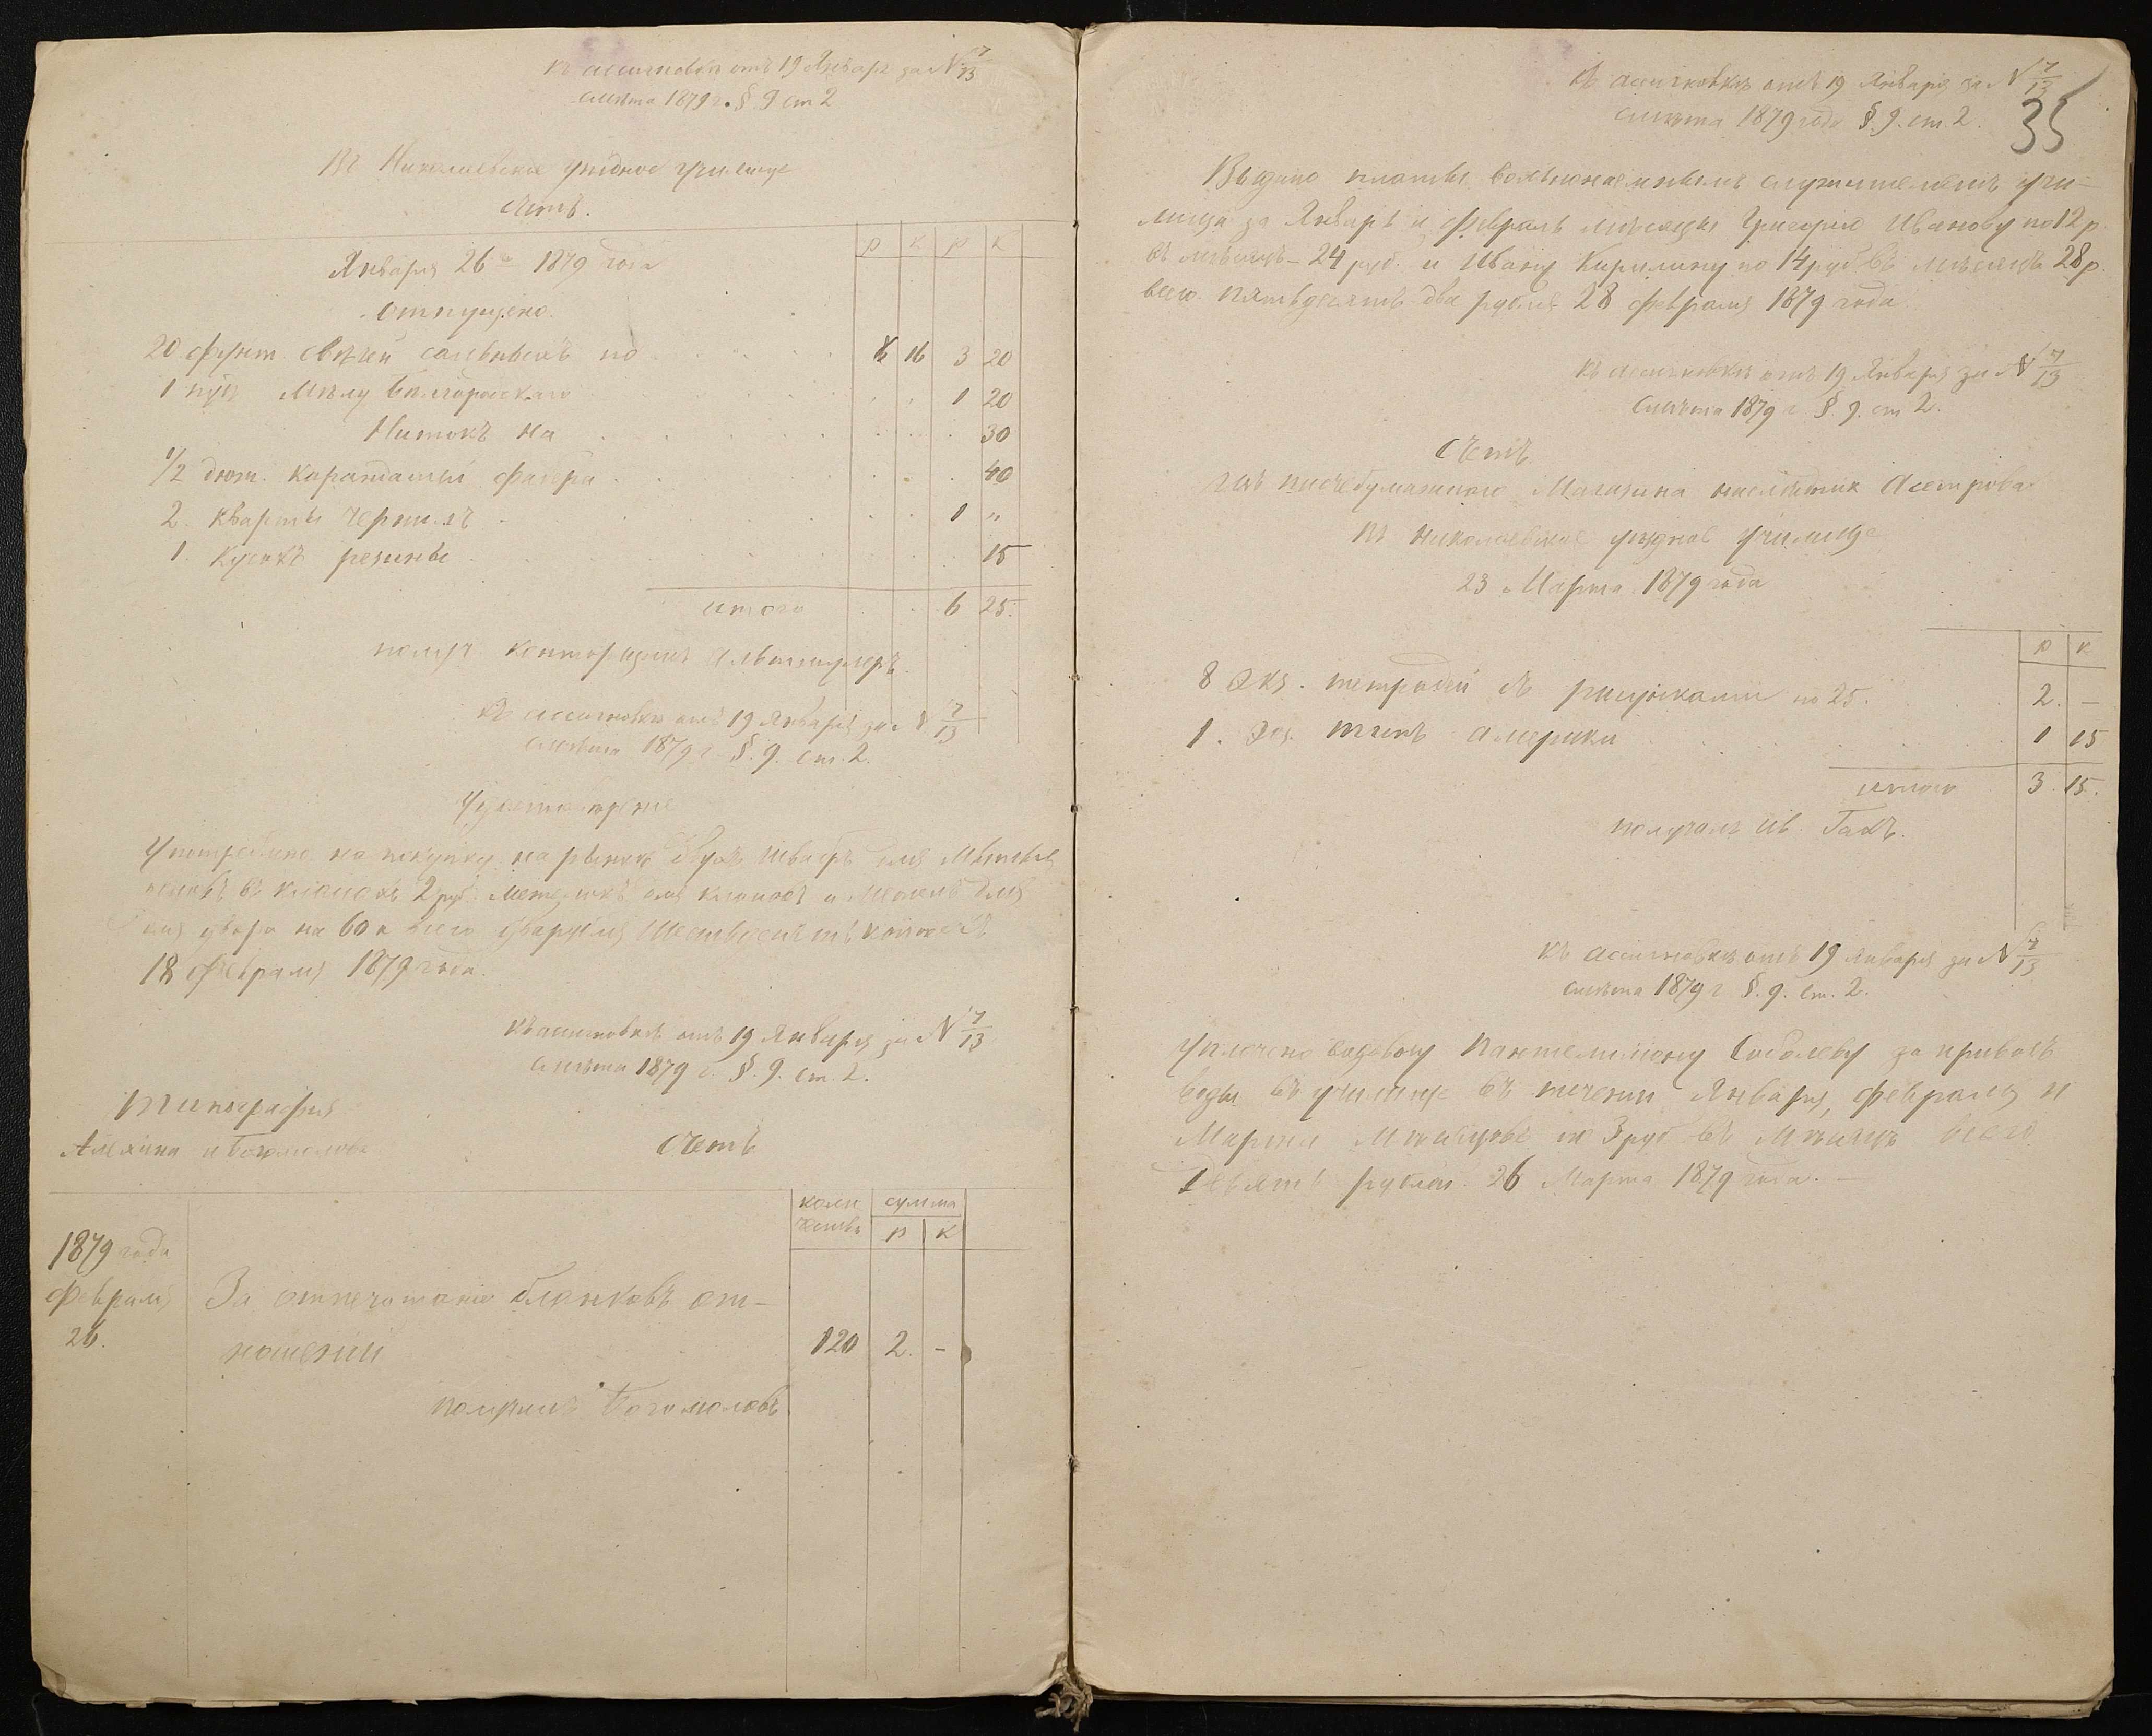 Къ ассигновкѣ отъ 19 Января за № 7/13
смѣта 1879 г. § 9 ст 2
Въ Николаевское уѣздное училище
Счетъ.
Р К Р К
Января 26 1879 года
отпущено.
20 фунт свѣчей сальныхъ по 16 3 20
1 пудъ Мѣлу Бѣлгородскаго 1 20
Нитокъ на 30
1/2 дюж. карандашей Фабера 40
2. кварты чернилъ 1 "
1. кусокъ резины 15
итого 6 25.
получ конторщикъ Альтшулеръ.
Къ ассигновкѣ отъ 19 Января за № 7/13
смѣта 1879 г. §. 9. ст. 2.
Употреблено на покупку на рынкѣ двухъ швабръ для мытья
половъ въ классахъ 2 руб. метелокъ для классовъ и метелъ для
для двора на 60 к всего два рубля шестьдесятъ копѣекъ
18 Февраля 1879 года.
Къ ассигновкѣ отъ 19 Января за № 7/13
смѣта 1879 г. §. 9. ст. 2.
Типографія
и Богомолова Счетъ
коли
чество сумма
Р К
1879 года
Февраля За отпечатаніе бланковъ от-
26. ношеній 120 2. -
получилъ Богомоловъ
Къ ассигновкѣ отъ 19 Января за № 7/13
смѣта 1879 года §. 9. ст. 2.
35
Выдано платы вольнонаемнымъ служителямъ учи-
лища за Январь и Февраль мѣсяцы Григорію Иванову по 12 р
въ мѣсяцъ - 24 руб. и Ивану Кирилину по 14 руб въ мѣсяцъ 28 р.
всего пятьдесятъ два рубля 28 февраля 1879 года
Къ ассигновкѣ отъ 19 Января за № 7/13
смѣта 1879 г. §. 9. ст 2.
Счетъ
изъ писчебумажнаго Магазина Осетрова
Въ Николаевское уѣздное училище
23 Марта 1879 года
Р К
8 экз. тетрадей съ рисунками по 25. 2. -
1. экз. Америки 1 15
итого 3. 15.
получилъ Ив. Гахъ.
Къ ассигновкѣ отъ 19 Января за № 7/13
смѣта 1879 г §. 9. ст. 2.
Уплочено водовозу Пантелимону Соболеву за привозъ
воды въ училище въ теченіи Января, Февраля и
Марта мѣсяцевъ по 3 руб въ мѣсяцъ всего
девять рублей. 26 Марта 1879 года. -